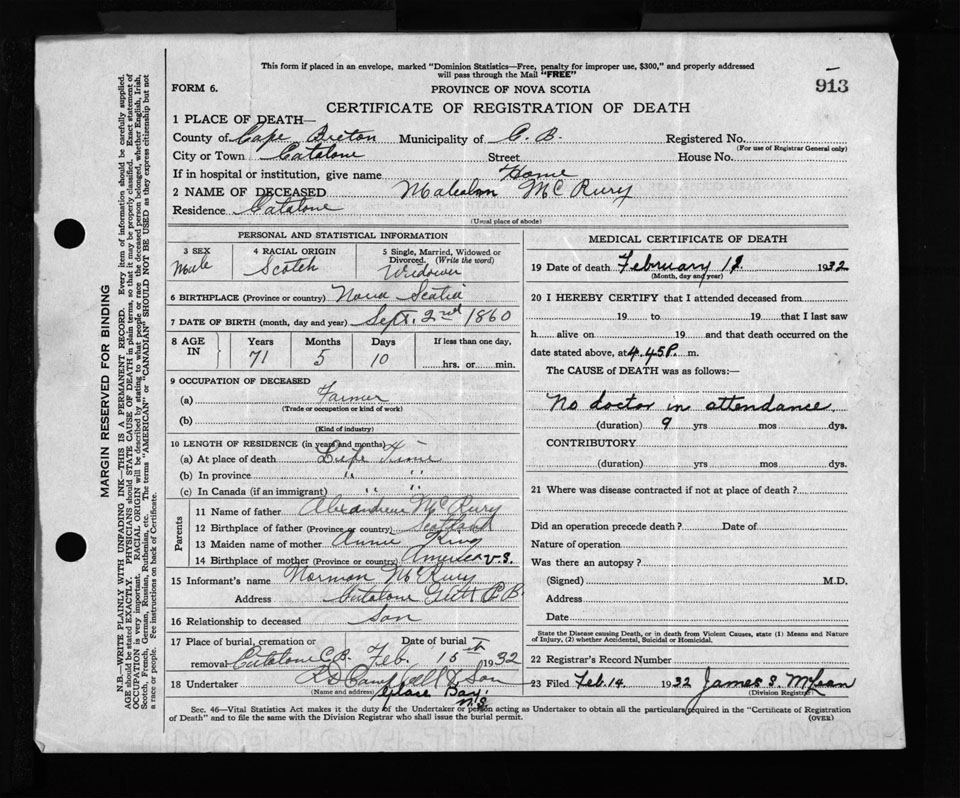 This form if placed in an envelope, marked "Dominion Statistics—Free, penalty for improper use, $300," and properly addressed
will pass through the Mail "FREE"
FORM 6.
PROVINCE OF NOVA SCOTIA
913
CERTIFICATE OF REGISTRATION OF DEATH
1 PLACE OF DEATH—
County of Cape Breton Municipality of C. B. Registered No.
(For use of Registrar General only)
City or Town Catalone Street House No.
If in hospital or institution, give name Home
2 NAME OF DECEASED Malcolm McRury
Residence Catalone
(Usual place of abode)
PERSONAL AND STATISTICAL INFORMATION
3 SEX 4 RACIAL ORIGIN 5 Single, Married, Widowed or
Divorced. (Write the word)
Male Scotch Widower
6 BIRTHPLACE (Province or country) Nova Scotia
7 DATE OF BIRTH (month, day and year) Sept. 2nd 1860
8 AGE IN Years Months Days If less than one day,
71 5 10 hrs. or min.
9 OCCUPATION OF DECEASED
(a) Farmer
(Trade or occupation or kind of work)
(b)
(Kind of industry)
10 LENGTH OF RESIDENCE (in years and months)
(a) At place of death Life Time
(b) In province " "
(c) In Canada (if an immigrant) " "
Parents
11 Name of father McRury
12 Birthplace of father (Province or country) Scotland
13 Maiden name of mother Annie King
14 Birthplace of mother (Province or country) America U.S.
15 Informant's name Norman McRury
Address Catalone C.B.
16 Relationship to deceased Son
17 Place of burial, cremation or Date of burial
removal Catalone C.B. Feb. 15th 1932
18 Undertaker Campbell & Son
(Name and address) Glace Bay, N.S.
MEDICAL CERTIFICATE OF DEATH
19 Date of death February 12 1932
(Month, day and year)
20 I HEREBY CERTIFY that I attended deceased from
19 to 19 that I last saw
h alive on 19 and that death occurred on the
date stated above, at 4.45 P. m.
The CAUSE of DEATH was as follows:—
No doctor in attendance
(duration) 9 yrs mos dys.
CONTRIBUTORY
(duration) yrs mos dys.
21 Where was disease contracted if not at place of death?
Did an operation precede death? Date of
Nature of operation
Was there an autopsy?
(Signed) M.D.
Address
Date
State the Disease causing Death, or in death from Violent Causes, state (1) Means and Nature
of Injury, (2) whether Accidental, Suicidal or Homicidal.
22 Registrar's Record Number
23 Filed Feb. 14. 1932 James S. McLean
(Division Registrar)
Sec. 46—Vital Statistics Act makes it the duty of the Undertaker or person acting as Undertaker to obtain all the particulars required in the "Certificate of Registration
of Death" and to file the same with the Division Registrar who shall issue the burial permit.
(OVER)
MARGIN RESERVED FOR BINDING
N.B.—WRITE PLAINLY WITH UNFADING INK—THIS IS A PERMANENT RECORD. Every item of information should be carefully supplied.
AGE should be stated EXACTLY. PHYSICIANS should STATE CAUSE OF DEATH in plain terms, so that it may be properly classified. Exact statement of
OCCUPATION is very important. RACIAL ORIGIN will be described by stating to what people or race the deceased person belonged, whether English, Irish,
Scotch, French, German, Russian, Ruthenian, etc. The terms "AMERICAN" or "CANADIAN" SHOULD NOT BE USED as they express citizenship but not
a race or people. See instructions on back of Certificate.